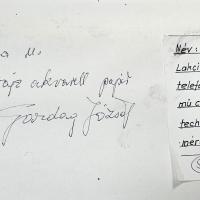 a u.
akvarell papir
Gazdag József
Név:
Lakcí
telefo
mű c
tech
mér